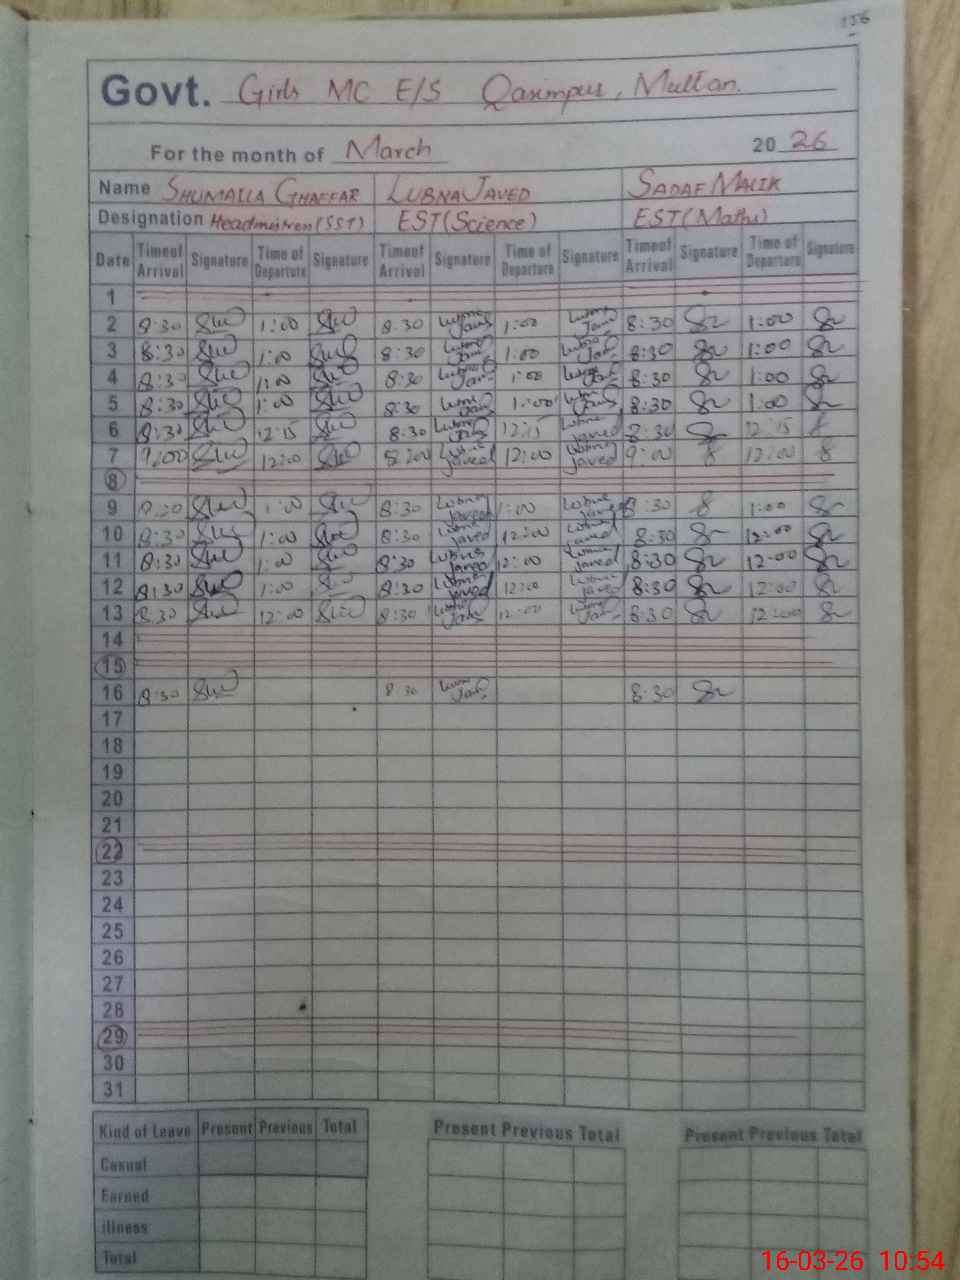 156
Govt. Girls MC E/S Qasimpur, Multan.
For the month of March 2026
Name SHUMAILA GHAFFAR LUBNA JAVED SADAF MALIK
Designation Headmistress (SST) EST (Science) EST (Maths)
Date Timeof Arrival Signature Time of Departure Signature Timeof Arrival Signature Time of Departure Signature Timeof Arrival Signature Time of Departure Signature
1
2 8:30 1:00 8:30 Lubna Javed 1:00 Lubna Javed 8:30 1:00
3 8:30 1:00 8:30 Lubna Javed 1:00 Lubna Javed 8:30 1:00
4 8:30 1:00 8:30 Lubna Javed 1:00 Lubna Javed 8:30 1:00
5 8:30 1:00 8:30 Lubna Javed 1:00 Lubna Javed 8:30 1:00
6 8:30 12:15 8:30 Lubna Javed 12:15 Lubna Javed 8:30 12:15
7 9:00 12:00 Lubna Javed 12:00 Lubna Javed 9:00 12:00
8
9 1:00 8:30 Lubna Javed 1:00 Lubna Javed 8:30 1:00
10 8:30 1:00 8:30 Lubna Javed 12:00 Lubna Javed 8:30 12:00
11 8:30 1:00 8:30 Lubna Javed 12:00 Lubna Javed 8:30 12:00
12 8:30 1:00 8:30 Lubna Javed 12:00 Lubna Javed 8:30 12:00
13 8:30 12:00 8:30 Lubna Javed 12:00 Lubna Javed 8:30 12:00
14
15
16 8:30 8:30 Lubna Javed 8:30
17
18
19
20
21
22
23
24
25
26
27
28
29
30
31
Kind of Leave Present Previous Total Present Previous Total Present Previous Total
Casual
Earned
illness
Total
16-03-26 10:54